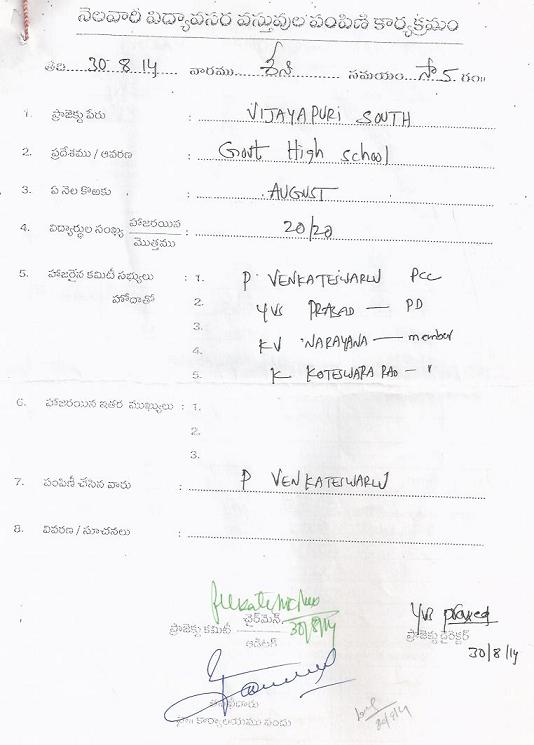 నెలవారీ విద్యావసర వస్తువుల పంపిణీ కార్యక్రమం
తేది 30.8.14 వారము శని సమయం సా 5 గం॥
1. ప్రాజెక్టు పేరు : VIJAYAPURI SOUTH
2. ప్రదేశము / ఆవరణ : Govt High school
3. ఏ నెల కొఱకు : AUGUST
4. విద్యార్థుల సంఖ్య హాజరయిన / మొత్తము : 20/20
5. హాజరైన కమిటీ సభ్యులు : 1. P. VENKATESWARLU PCC
హోదాతో 2. YVS PRASAD — PD
3.
KV NARAYANA — member
4.
5. K KOTESWARA RAO — "
6. హాజరయిన ఇతర ముఖ్యులు : 1.
2.
3.
7. పంపిణీ చేసిన వారు : P VENKATESWARLU
8. వివరణ / సూచనలు :
ప్రాజెక్టు కమిటీ చైర్‌మెన్ 30/8/14
ఆడిటర్
YVS prasad
ప్రాజెక్టు డైరెక్టర్
30/8/14
కార్యాలయము నందు